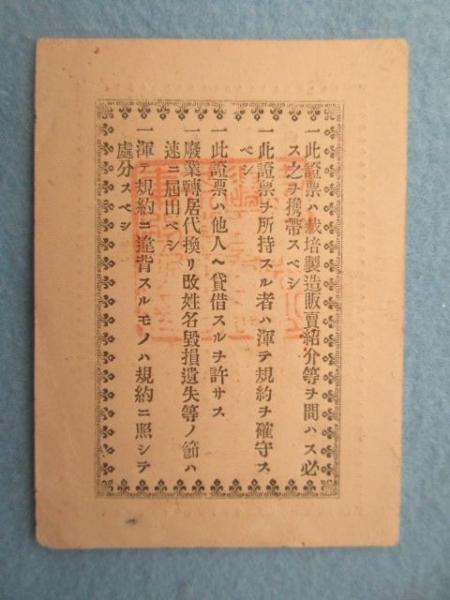 一此證票ハ栽培製造販賣紹介等ヲ問ハス必
ス之ヲ携帶スベシ
一此證票ヲ所持スル者ハ渾テ規約ヲ確守ス
ベシ
一此證票ハ他人ヘ貸借スルヲ許サス
一廢業轉居代換リ改姓名毀損遺失等ノ節ハ
速ニ屆出ベシ
一渾テ規約ニ違背スルモノハ規約ニ照シテ
處分スベシ